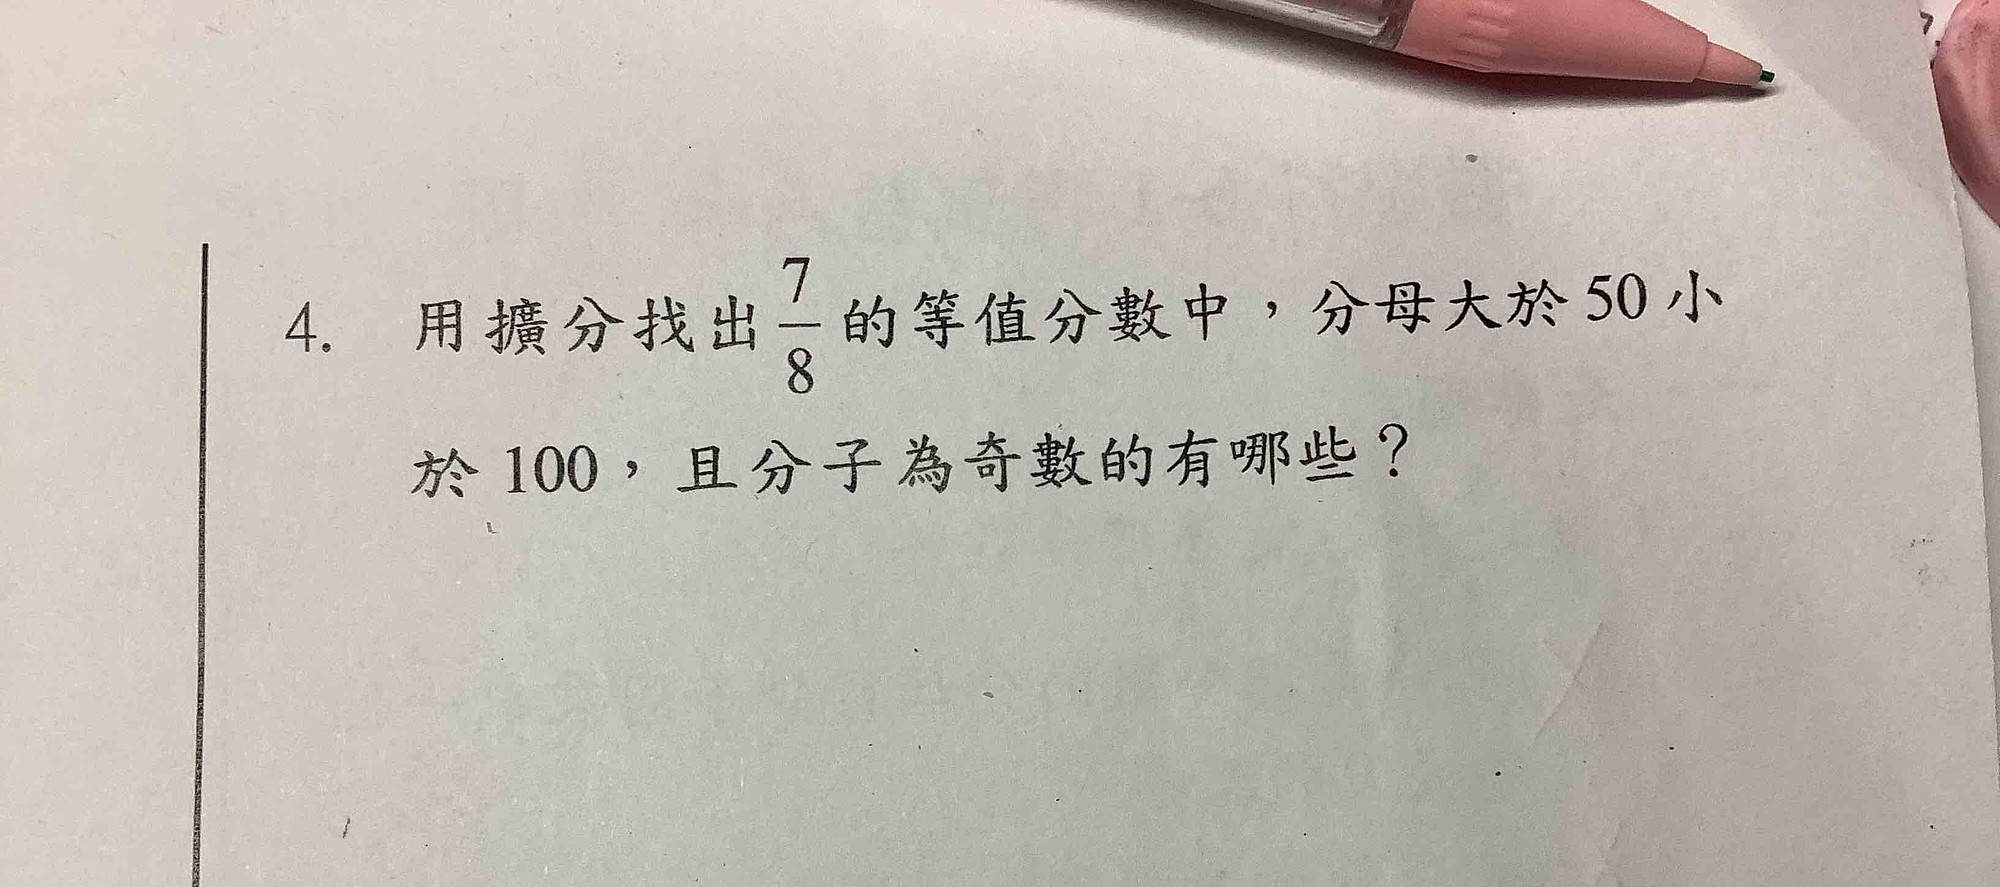 4. 用擴分找出 7/8 的等值分數中，分母大於 50 小
於 100，且分子為奇數的有哪些？